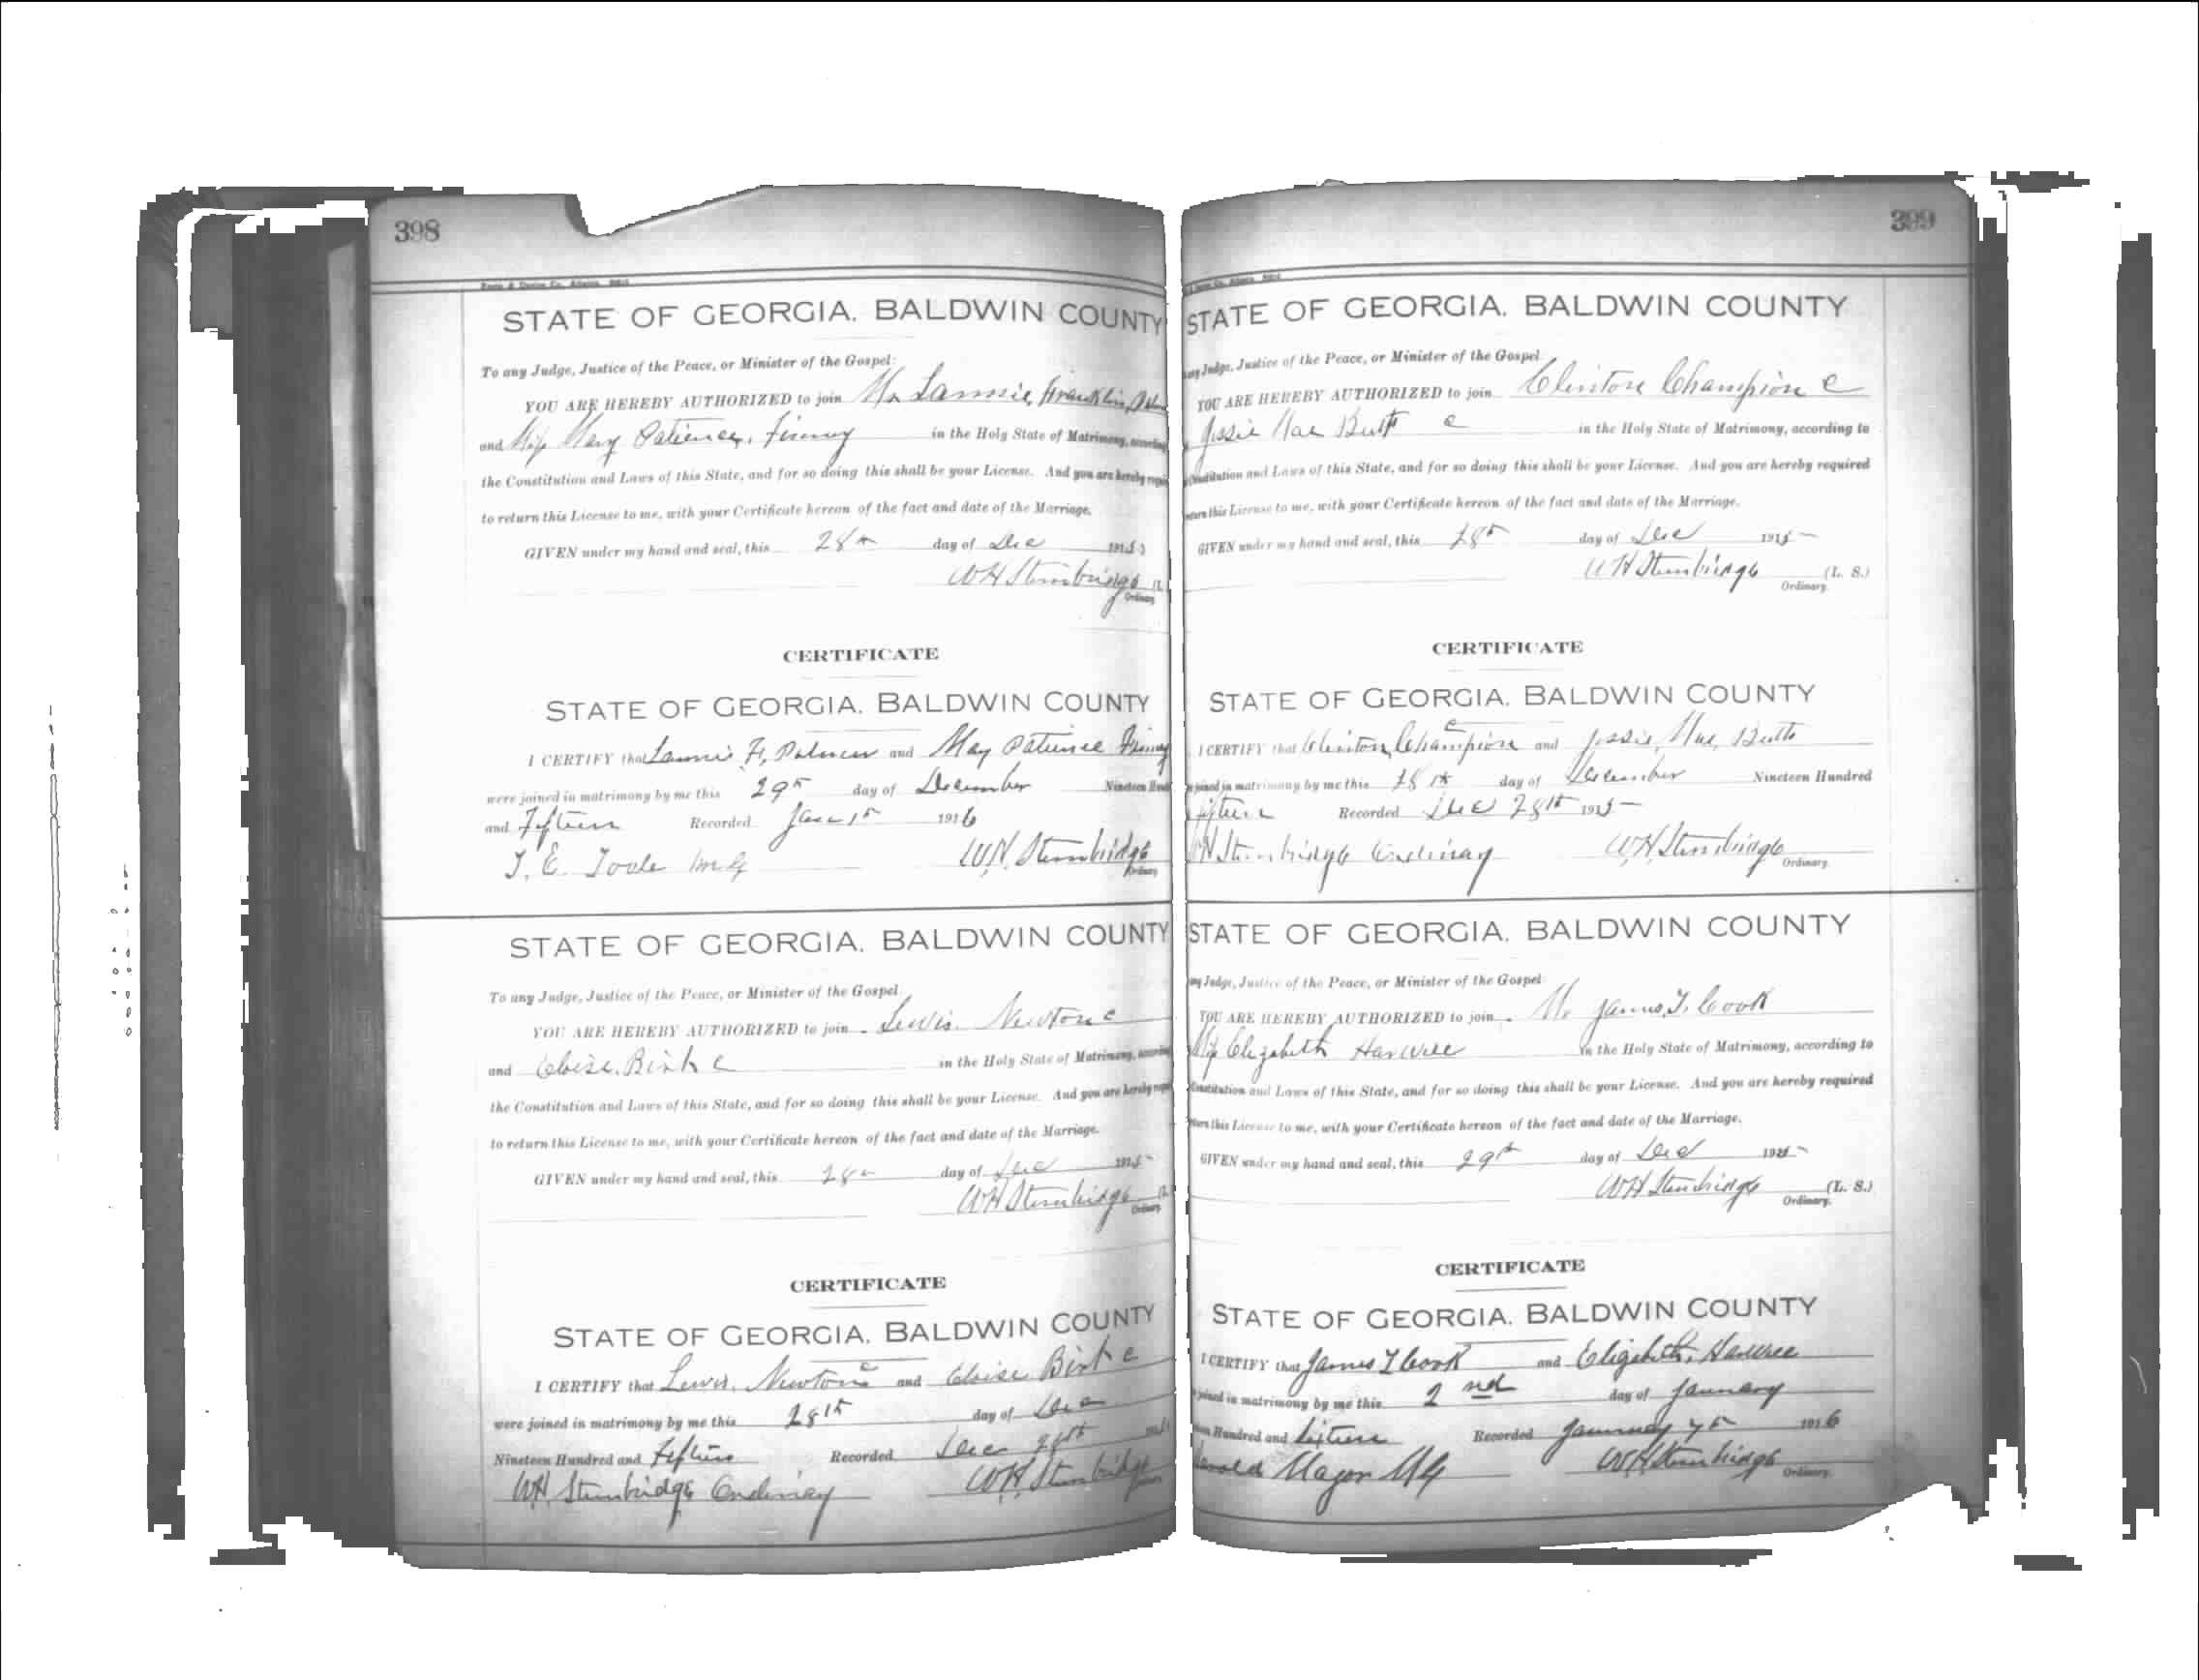 398
STATE OF GEORGIA. BALDWIN COUNTY
To any Judge, Justice of the Peace, or Minister of the Gospel:
YOU ARE HEREBY AUTHORIZED to join Mr Lannie Franklin
and Miss Mary Patience Finney in the Holy State of Matrimony, according
the Constitution and Laws of this State, and for so doing this shall be your License. And you are hereby
to return this License to me, with your Certificate hereon of the fact and date of the Marriage.
GIVEN under my hand and seal, this 28th day of Dec 1915
WH Stembridge (L
Ordinary
CERTIFICATE
STATE OF GEORGIA. BALDWIN COUNTY
I CERTIFY that Lannie F. Palmer and May Patience Finney
were joined in matrimony by me this 29th day of December Nineteen
and Fifteen Recorded Jan 1st 1916
T. E. Toole M.G. W.H. Stembridge
Ordinary
STATE OF GEORGIA. BALDWIN COUNTY
To any Judge, Justice of the Peace, or Minister of the Gospel
YOU ARE HEREBY AUTHORIZED to join Lewis Newton c
and Eloise Birk c in the Holy State of Matrimony,
the Constitution and Laws of this State, and for so doing this shall be your License. And you are hereby
to return this License to me, with your Certificate hereon of the fact and date of the Marriage.
GIVEN under my hand and seal, this 28th day of Dec 1915
WH Stembridge
Ordinary
CERTIFICATE
STATE OF GEORGIA. BALDWIN COUNTY
I CERTIFY that Lewis Newton c and Eloise Birk c
were joined in matrimony by me this 28th day of Dec
Nineteen Hundred and Fifteen Recorded Dec 28th
WH. Stembridge Ordinary WH. Stembridge
399
STATE OF GEORGIA. BALDWIN COUNTY
any Judge, Justice of the Peace, or Minister of the Gospel
YOU ARE HEREBY AUTHORIZED to join Clinton Champion c
Jessie Mae Butts c in the Holy State of Matrimony, according to
Constitution and Laws of this State, and for so doing this shall be your License. And you are hereby required
return this License to me, with your Certificate hereon of the fact and date of the Marriage.
GIVEN under my hand and seal, this 28th day of Dec 1915
WH Stembridge (L. S.)
Ordinary.
CERTIFICATE
STATE OF GEORGIA. BALDWIN COUNTY
I CERTIFY that Clinton Champion c and Jessie Mae Butts
joined in matrimony by me this 28th day of December Nineteen Hundred
Fifteen Recorded Dec 28th 1915
WH Stembridge Ordinary W.H Stembridge
Ordinary.
STATE OF GEORGIA. BALDWIN COUNTY
any Judge, Justice of the Peace, or Minister of the Gospel
YOU ARE HEREBY AUTHORIZED to join Mr James T. Cook
Miss Elizabeth Harwell in the Holy State of Matrimony, according to
Constitution and Laws of this State, and for so doing this shall be your License. And you are hereby required
return this License to me, with your Certificate hereon of the fact and date of the Marriage.
GIVEN under my hand and seal, this 29th day of Dec 1915
WH Stembridge (L. S.)
Ordinary.
CERTIFICATE
STATE OF GEORGIA. BALDWIN COUNTY
I CERTIFY that James T Cook and Elizabeth Harwell
joined in matrimony by me this 2nd day of January
Hundred and Sixteen Recorded January 7th 1916
Harold Major MG WH Stembridge
Ordinary.